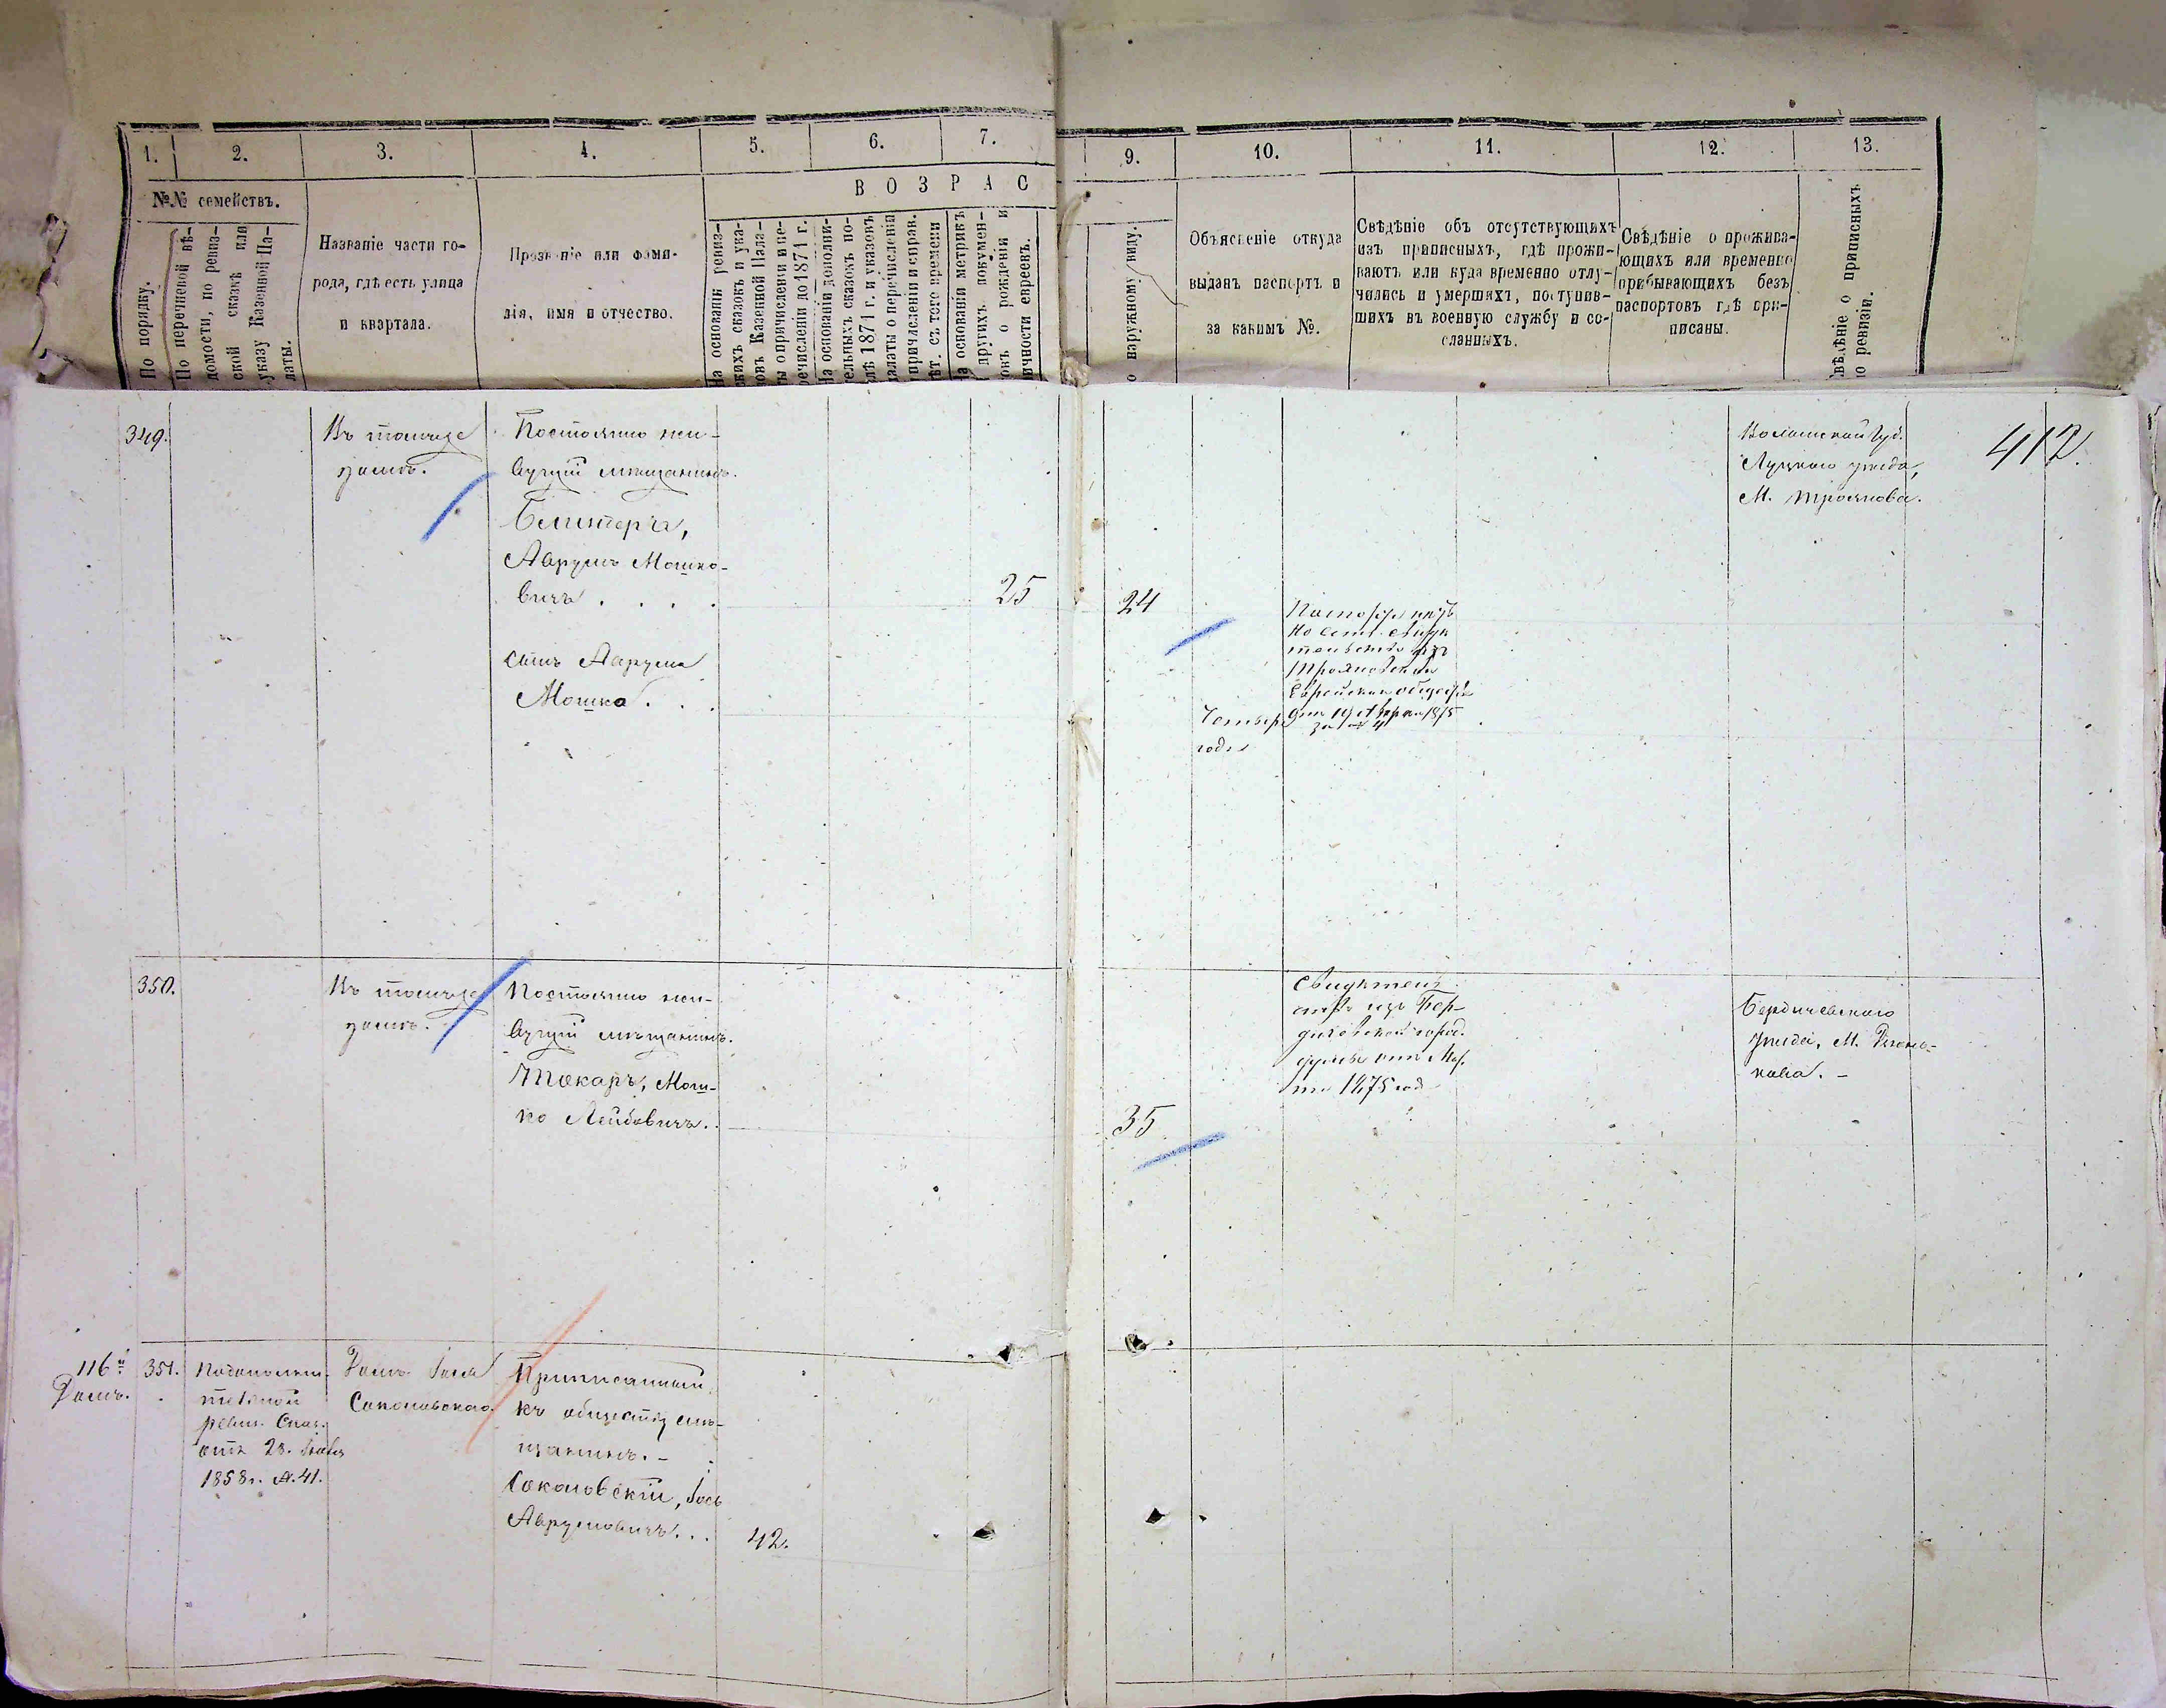 1.
2.
3.
4.
5.
6.
7.
9.
10.
11.
12.
13.
№№ семействъ.
По порядку.
По перечневой вѣ-
домости, по ревиз-
ской сказкѣ или
указу Казенной Па-
латы.
Названіе части го-
рода, гдѣ есть улица
и квартала.
Прозваніе или фами-
лія, имя и отчество.
ВОЗРАС
На основаніи ревиз-
скихъ сказокъ и ука-
зовъ Казенной Пала-
ты о причисленіи и пе-
речисленіи до 1871 г.
На основаніи дополни-
тельныхъ сказокъ по-
слѣ 1871 г. и указовъ
палаты о перечисленіи
причисленіи и справ.
лѣт. съ того времени
На основаніи метрикъ
другихъ докумен-
овъ о рожденіи и
личности евреевъ.
о наружному виду.
Объясненіе откуда
выданъ паспортъ и
за какимъ №.
Свѣдѣніе объ отсутствующихъ
изъ приписныхъ, гдѣ прожи-
ваютъ или куда временно отлу-
чились и умершихъ, поступив-
шихъ въ военную службу и со-
сланныхъ.
Свѣдѣніе о прожива-
ющихъ или временно
прибывающихъ безъ
паспортовъ гдѣ при-
писаны.
Свѣдѣніе о приписныхъ
по ревизіи.
349.
Въ томъ же
домѣ.
Постоянно жи-
вущій мѣщанинъ.
Аврумъ Мошко-
вичъ . . . .
25
24
сынъ Аврума
Мошко . . .
Четыре
года
Еврейскаго
1875
за № 4
Волынской Губ.
Луцкаго уѣзда,
М. Троянова.
412.
350.
Въ томъ же
домѣ.
Постоянно жи-
вущій мѣщанинъ.
Токаръ, Мош-
ко Лейбовичъ.
35
Свидѣтель
ство изъ Бер-
дичевской город.
думы отъ Мар.
та 1875 год
Бердичевскаго
уѣзда, М.
116й
Домъ.
351.
ревиз. Сказ.
отъ 28.
1858 г. №. 41.
Домъ Іося
Соколовскаго
Приписанный
къ обществу мѣ-
щанинъ. –
Соколовскій, Іось
Аврумовичъ . . .
42.